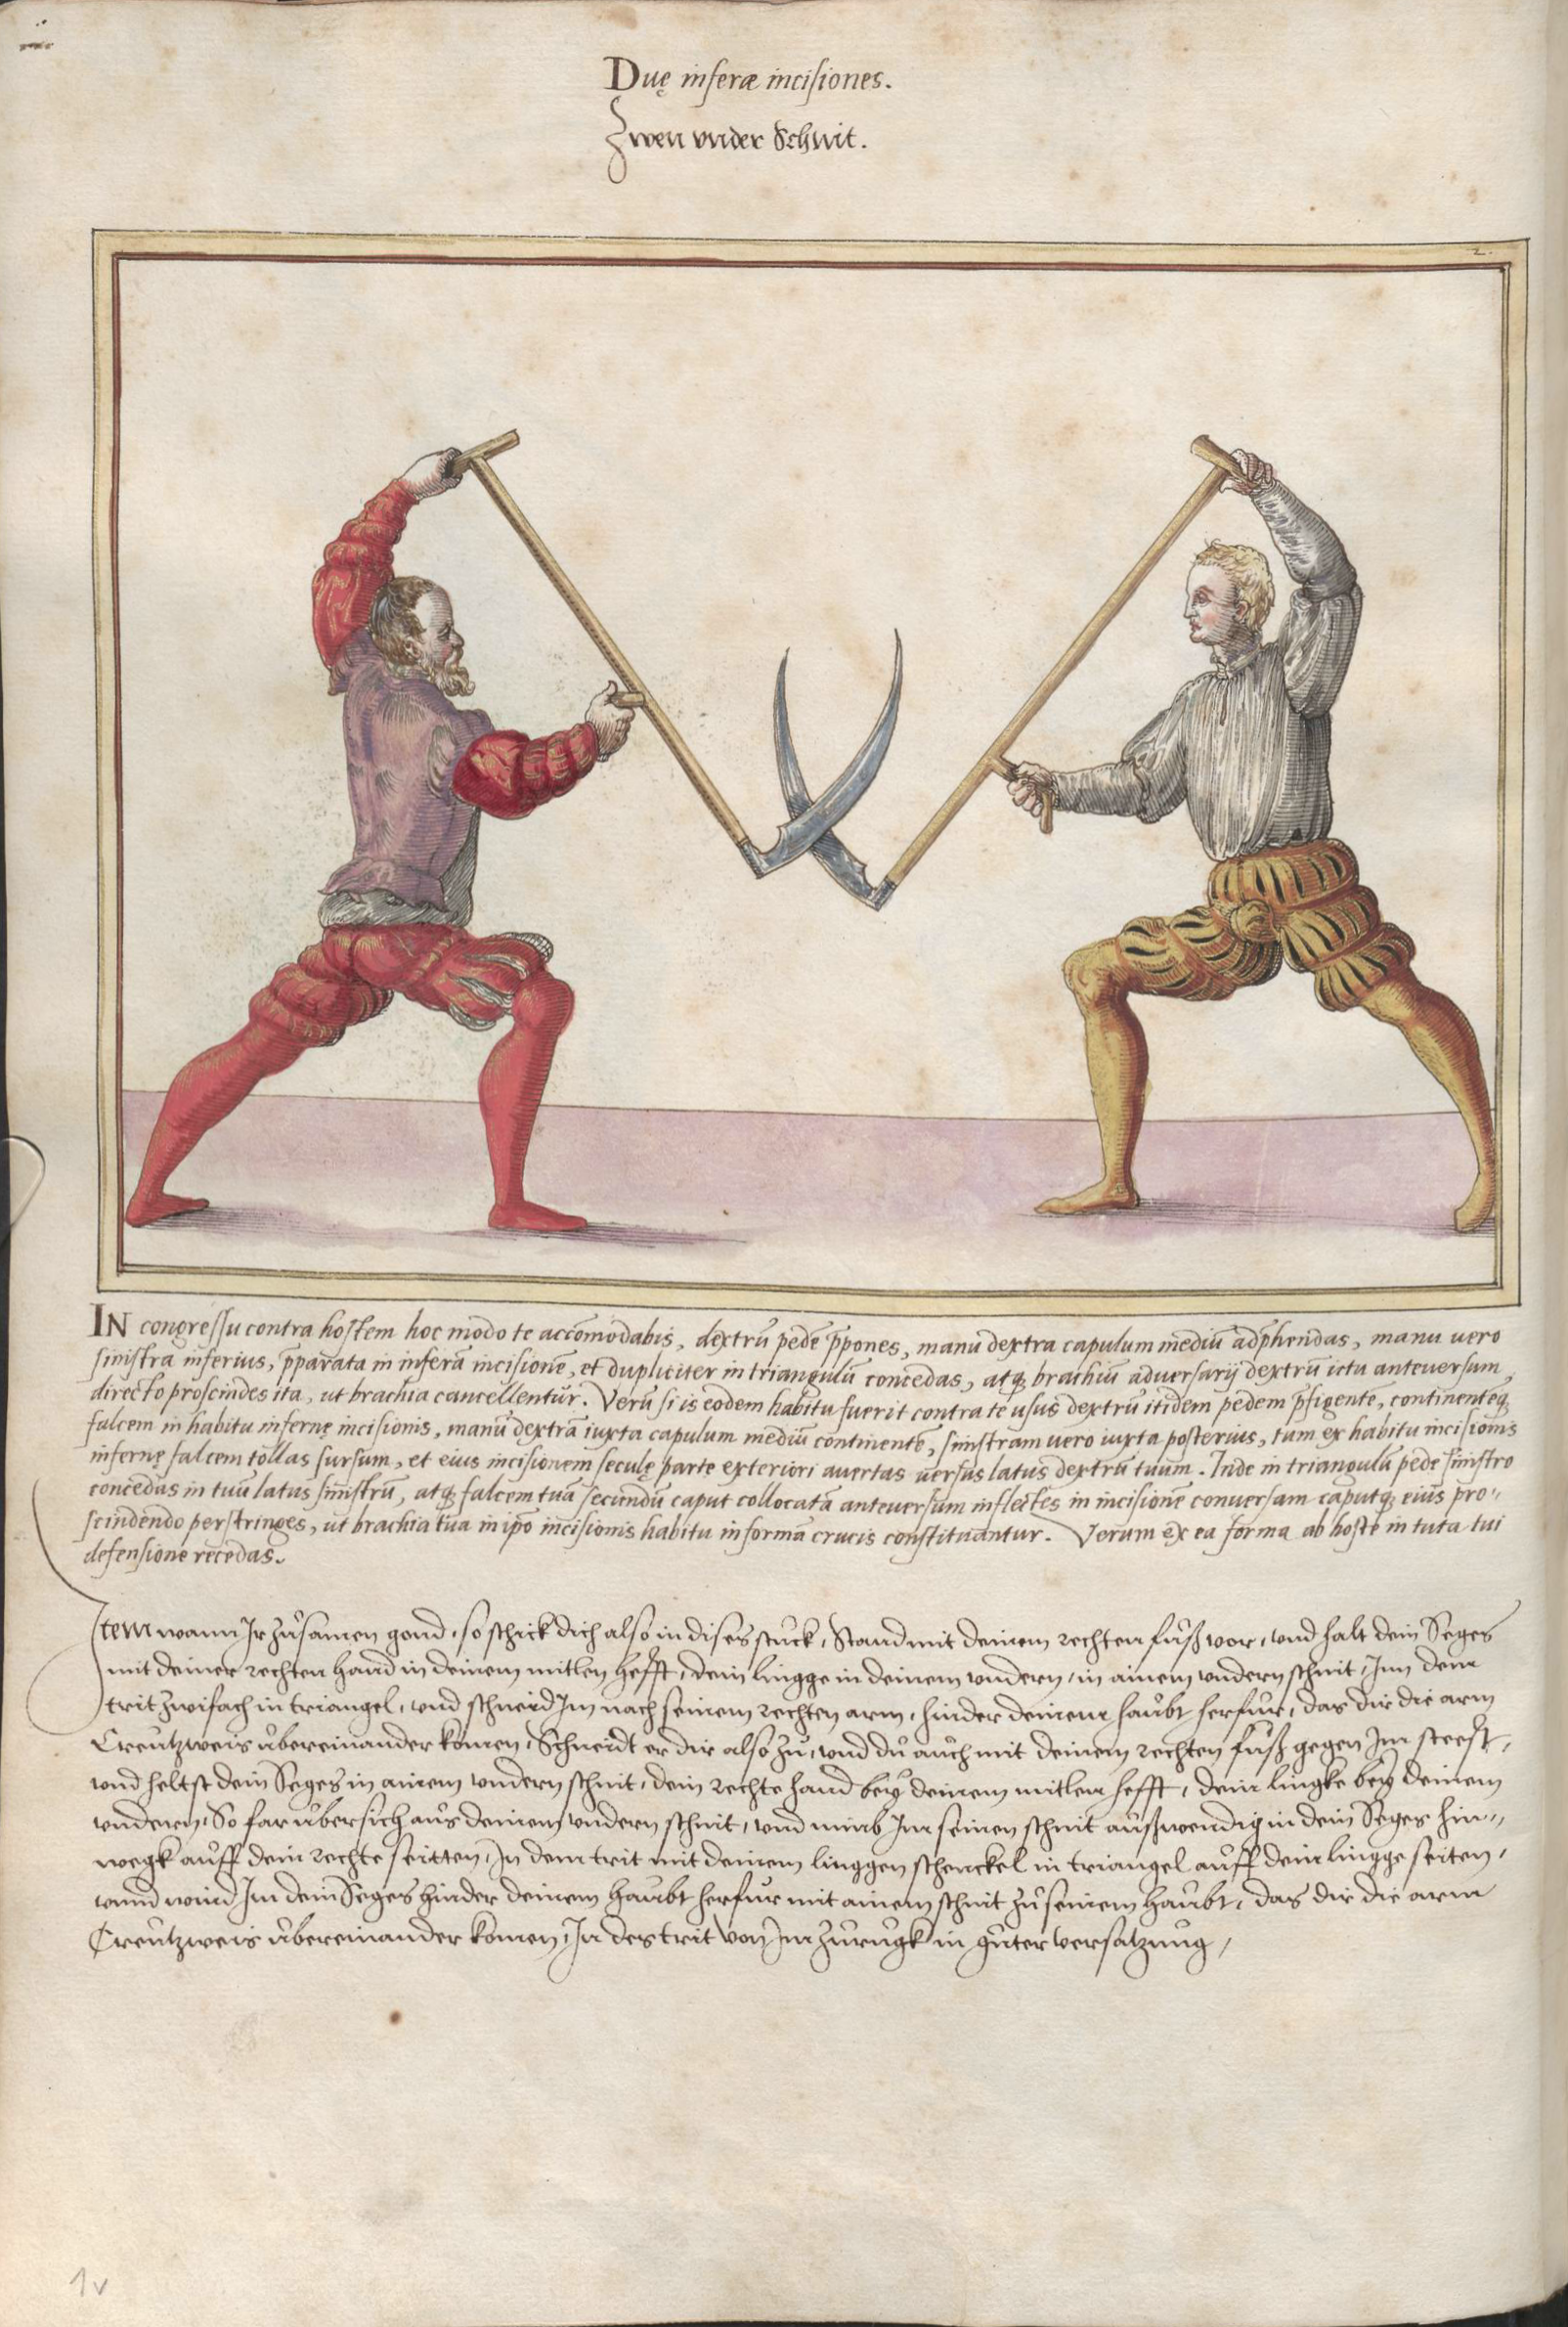 Duę inferæ incisiones.
Zwen vnder Schnit.
2.
IN congressu contra hostem hoc modo te accōmodabis, dextrū pedē p̄pones, manu dextra capulum mediū adp̄hendas, manu vero
sinistra inferius, p̄parata in inferā incisionē, et dupliciter in triangulū concedas, atq; brachiū adversarij dextrū ictu anteversum
directo proscindes ita, ut brachia cancellentur. Verū si is eodem habitu fuerit contra te usus dextrū itidem pedem p̄figente, continenteq;
falcem in habitu infernę incisionis, manū dextrā iuxta capulum mediū continentē, sinistram vero iuxta posterius, tum ex habitu incisionis
infernę falcem tollas sursum, et eius incisionem seculę parte exteriori avertas versus latus dextrū tuum. Inde in triangulū pede sinistro
concedas in tuū latus sinistrū, atq; falcem tuā secundū caput collocatā anteversum inflectes in incisionē conversam caputq; eius pro-
scindendo perstringes, ut brachia tua in ipō incisionis habitu in formā crucis constituantur. Verum ex ea forma ab hoste in tuta tui
defensione recedas.
Item wann Ir zůsamen gond, so schick dich also in dises stuck, Stand mit deinem rechten fůß vor, vnd halt dein Seges
mit deiner rechten hand in deinem mitlen hefft, dein lingge in deinem vndern, in ainem vndern schnit, Inn dem
trit zwifach in triangel, vnd schneid Im nach seinem rechten arm, hinder deinem haubt herfur, das dir die arm
Creutzweis ubereinander komen, Schneidt er dir also zů, vnd du auch mit deinem rechten fůß gegen Im steest,
vnd heltst dein Seges in ainem vndern schnit, dein rechte hand bey deinem mitlen hefft, dein lingke bey deinem
vnderen, So far ubersich aus deinem vndern schnit, vnd nimb Im seinen schnit außwendig in dein Seges hin-
wegk auff dein rechte seitten, In dem trit mit deinem linggen schenckel in triangel auff dein lingge seiten,
vnnd wind Im dein Seges hinder deinem haubt herfur mit ainem schnit zů seinem haubt, das dir die arm
Creutzweis ubereinander komen, In des trit von Im zurugk in gůter versatzung,
1v